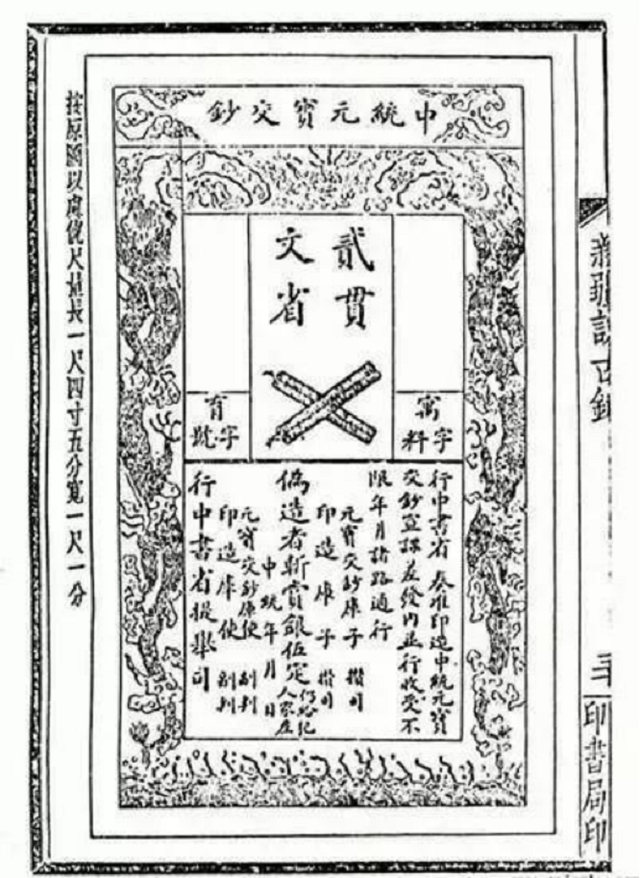 中統元寶交鈔
貳貫
文省
字料
育字號
行中書省 奏准印造中統元寶
交鈔宣課差發内並行收受不
限年月諸路通行
元寶交鈔庫子 攢司
印造庫子 攢司
偽造者斬賞銀伍定仍給犯人家產
中統年月日
元寶交鈔庫使 副判
印造庫使 副判
行中書省提舉司
按原圖以虞俿尺量長一尺四寸五分寬一尺一分
新疆訪古錄
印書局印